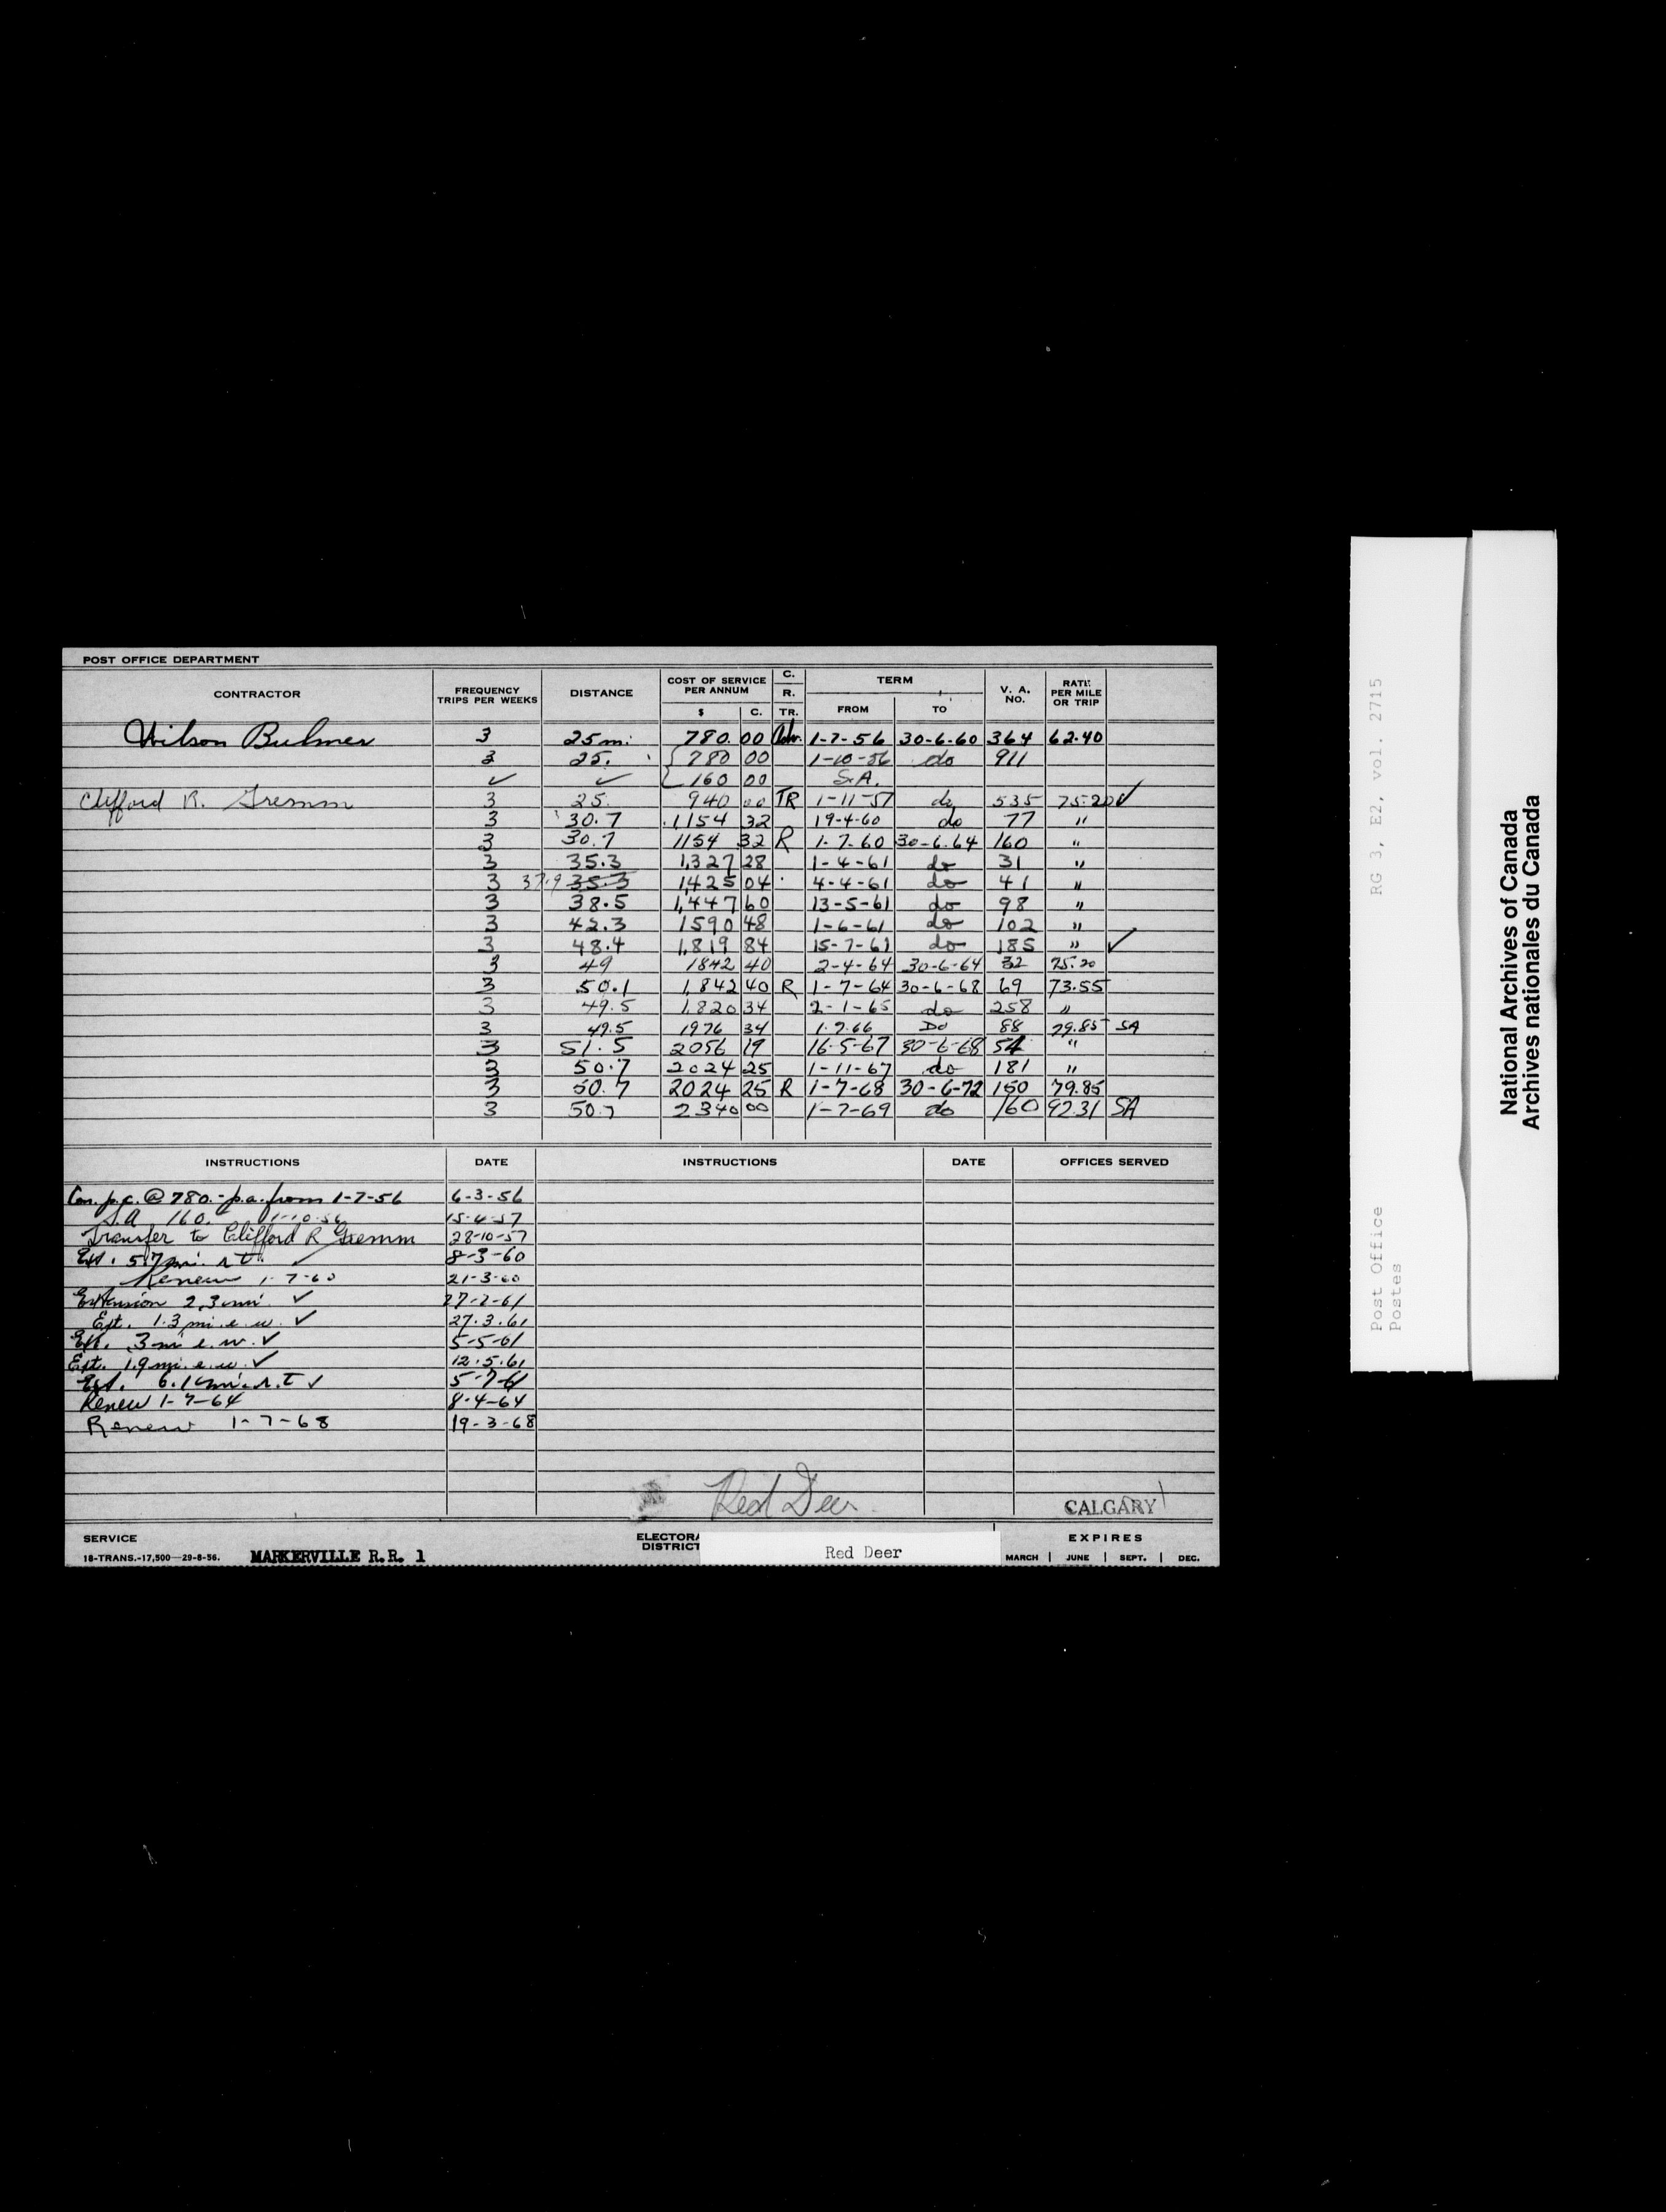 POST OFFICE DEPARTMENT
CONTRACTOR FREQUENCY TRIPS PER WEEKS DISTANCE COST OF SERVICE PER ANNUM $ C. C. R. TR. TERM FROM TO V. A. NO. RATE PER MILE OR TRIP
Wilson Bulmer 3 25 mi. 780.00 Adv. 1-7-56 30-6-60 364 62.40
3 25. 780 00 1-10-56 do 911
✓ ✓ 160 00 S.A.
Clifford R. Gremm 3 25. 940 00 TR 1-11-57 do 535 75.20 ✓
3 30.7 1154 32 19-4-60 do 77 "
3 30.7 1154 32 R 1-7-60 30-6-64 160 "
3 35.3 1,327 28 1-4-61 do 31 "
3 37.9 35.3 1425 04 4-4-61 do 41 "
3 38.5 1,447 60 13-5-61 do 98 "
3 42.3 1590 48 1-6-61 do 102 "
3 48.4 1,819 84 15-7-61 do 185 " ✓
3 49 1842 40 2-4-64 30-6-64 32 75.20
3 50.1 1,842 40 R 1-7-64 30-6-68 69 73.55
3 49.5 1,820 34 2-1-65 do 258 "
3 49.5 1976 34 1.7.66 Do 88 79.85 SA
3 51.5 2056 19 16-5-67 30-6-68 54 "
3 50.7 2024 25 1-11-67 do 181 "
3 50.7 2024 25 R 1-7-68 30-6-72 150 79.85
3 50.7 2340 00 1-7-69 do 160 92.31 SA
INSTRUCTIONS DATE INSTRUCTIONS DATE OFFICES SERVED
Con. p.c. @ 780.- p.a. from 1-7-56 6-3-56
S.A 160. 1-10-56 15-4-57
Transfer to Clifford R Gremm 28-10-57
Ext. 5.7 mi. r.t. 8-3-60
Renew 1-7-60 21-3-60
Extension 2.3 mi ✓ 27-2-61
Ext. 1.3 mi. e. w. ✓ 27.3.61
Ext. .3 mi e. w. ✓ 5-5-61
Ext. 1.9 mi. e. w. ✓ 12.5.61
Ext. 6.1 mi. r.t ✓ 5-7-61
Renew 1-7-64 8-4-64
Renew 1-7-68 19-3-68
Red Deer
CALGARY
SERVICE
18-TRANS.-17,500—29-8-56. MARKERVILLE R.R. 1 ELECTORA DISTRICT Red Deer
EXPIRES
MARCH | JUNE | SEPT. | DEC.
Post Office RG 3, E2, vol. 2715
Postes
National Archives of Canada
Archives nationales du Canada